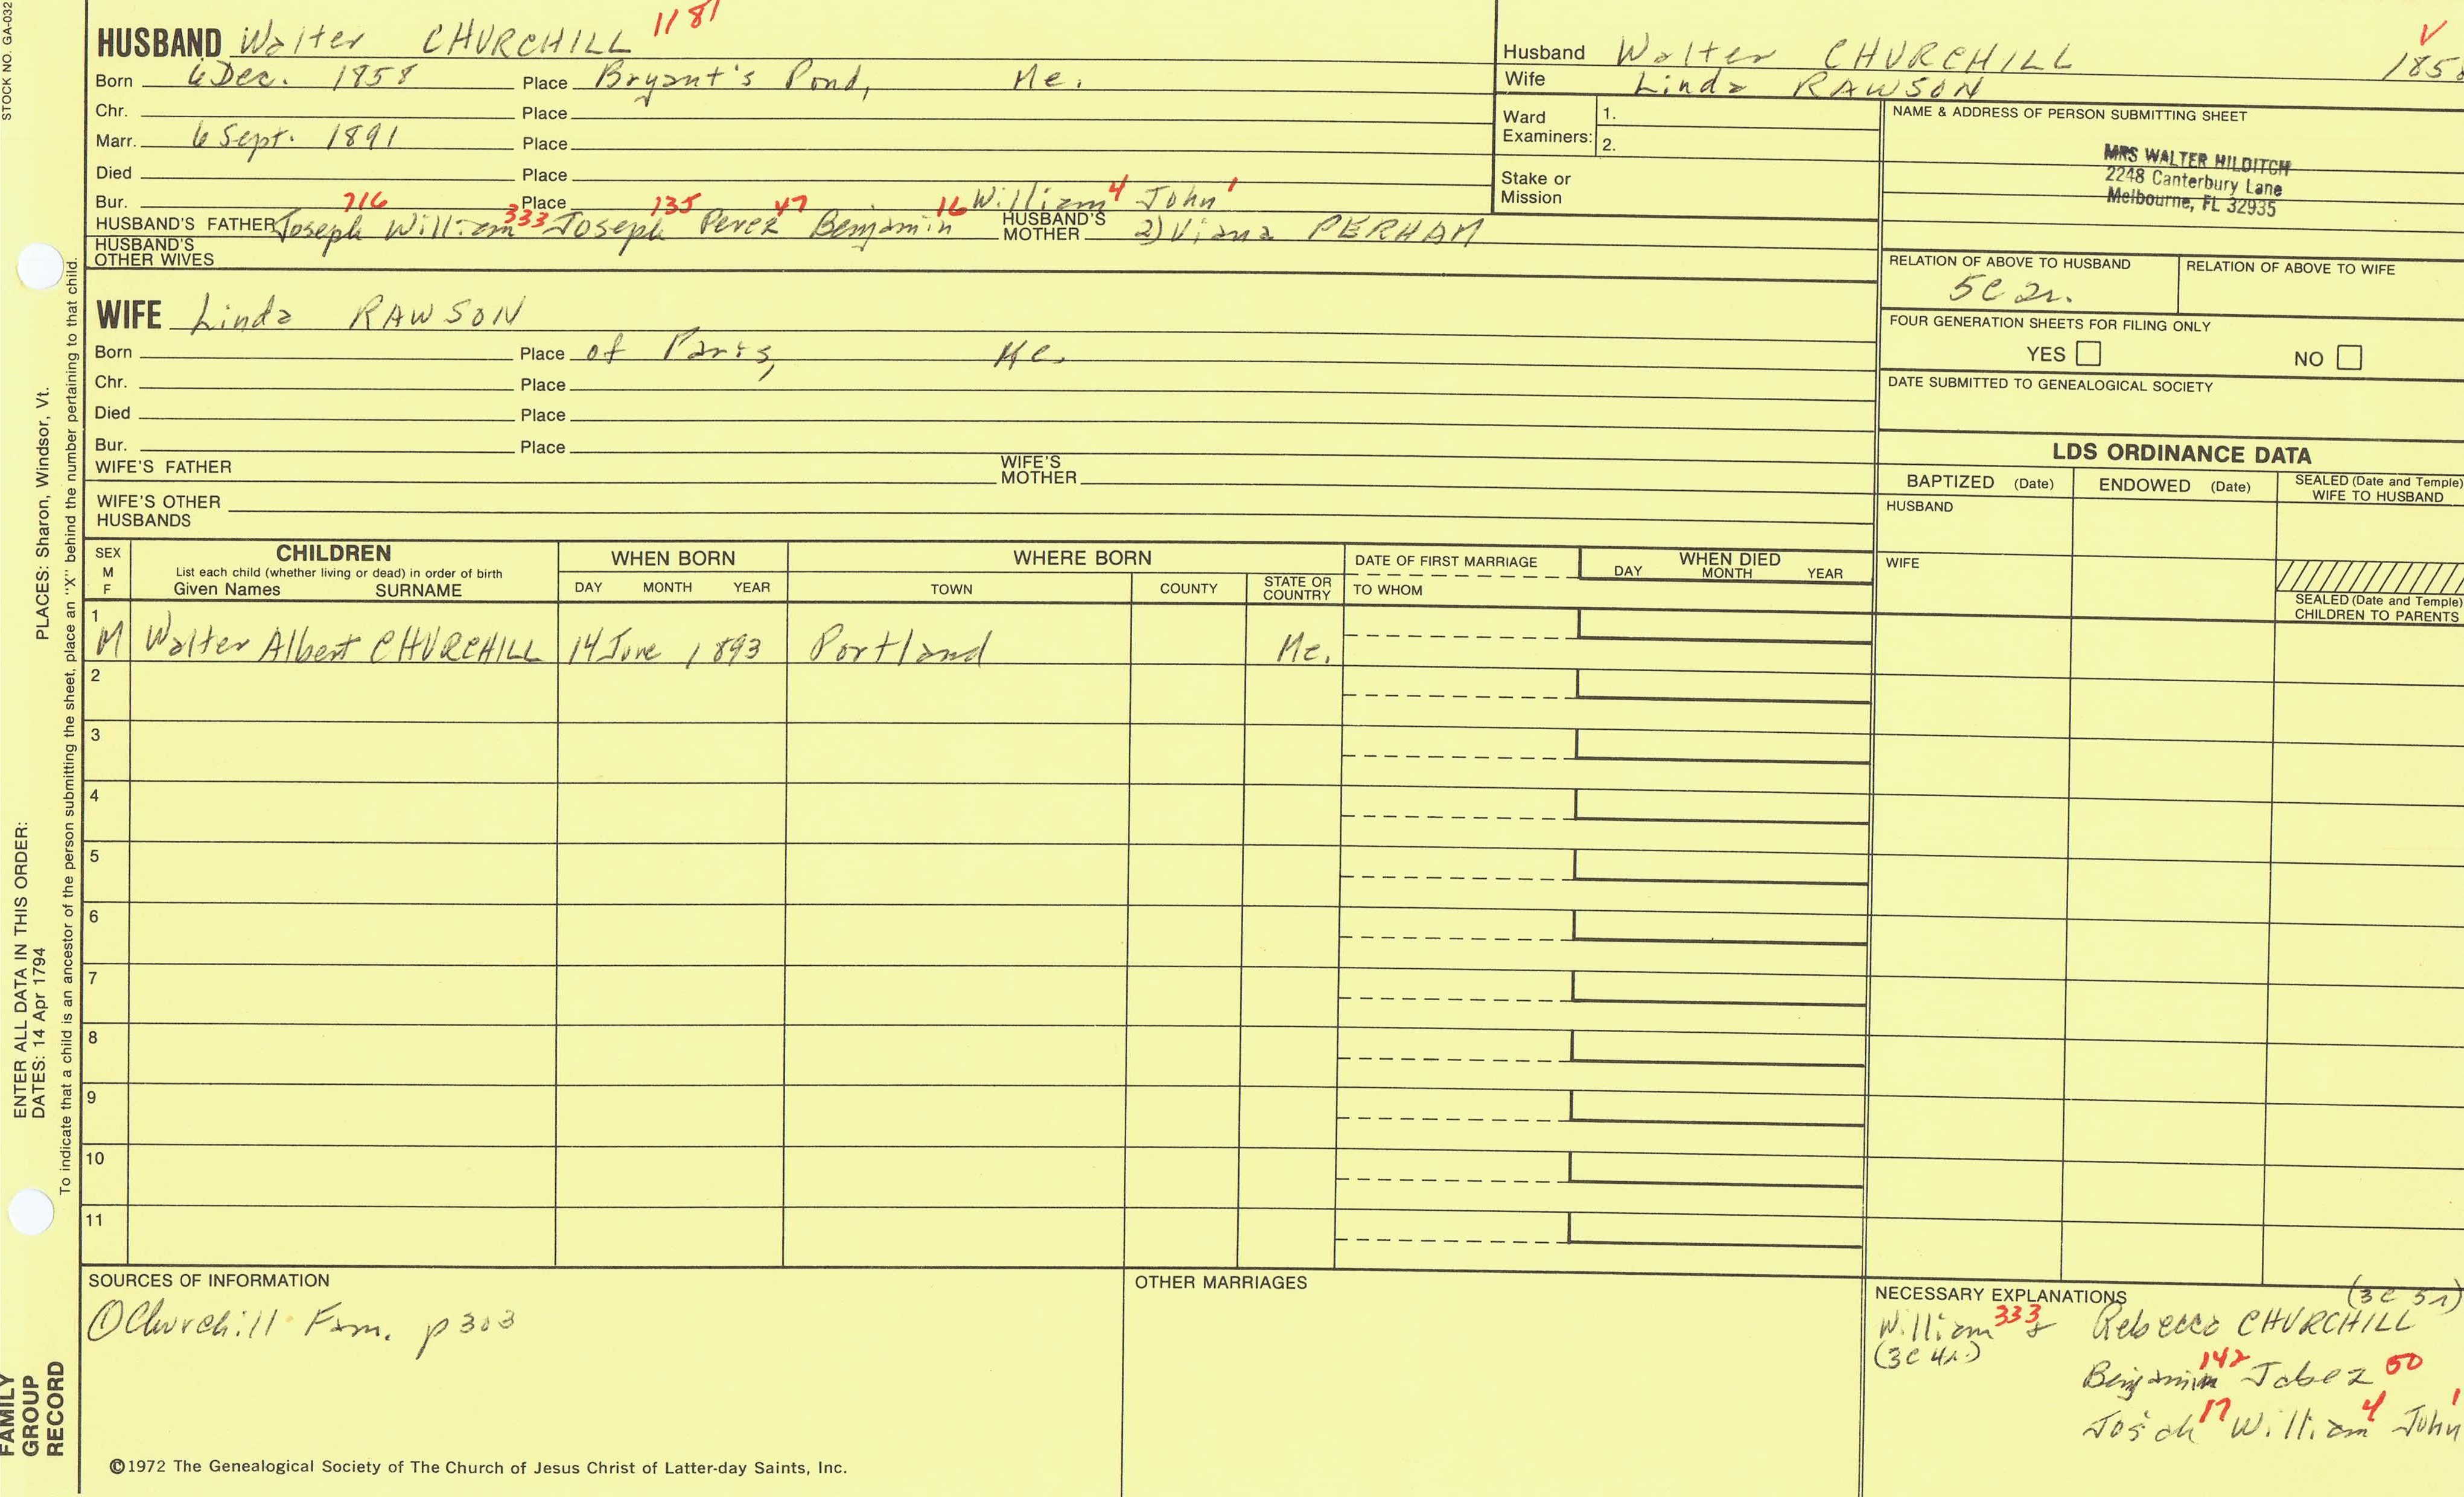 STOCK NO. GA-032
HUSBAND Walter CHURCHILL 1181
Born 6 Dec. 1858 Place Bryant's Pond, Me.
Chr. Place
Marr. 6 Sept. 1891 Place
Died Place
Bur. Place
HUSBAND'S FATHER Joseph 716 William 333 Joseph 135 Perez 47 Benjamin 16 William 4 John 1 HUSBAND'S MOTHER 2) Viana PERHAM
HUSBAND'S OTHER WIVES
Husband Walter CHURCHILL
Wife Linda RAWSON
Ward Examiners: 1.
2.
Stake or Mission
NAME & ADDRESS OF PERSON SUBMITTING SHEET
MRS WALTER HILDITCH
2248 Canterbury Lane
Melbourne, FL 32935
RELATION OF ABOVE TO HUSBAND RELATION OF ABOVE TO WIFE
5C 2r.
FOUR GENERATION SHEETS FOR FILING ONLY
YES NO
DATE SUBMITTED TO GENEALOGICAL SOCIETY
WIFE Linda RAWSON
Born Place of Paris, Me.
Chr. Place
Died Place
Bur. Place
WIFE'S FATHER WIFE'S MOTHER
WIFE'S OTHER HUSBANDS
LDS ORDINANCE DATA
BAPTIZED (Date) ENDOWED (Date) SEALED (Date and Temple) WIFE TO HUSBAND
HUSBAND
WIFE
SEALED (Date and Temple) CHILDREN TO PARENTS
SEX M F
CHILDREN
List each child (whether living or dead) in order of birth
Given Names SURNAME
WHEN BORN
DAY MONTH YEAR
WHERE BORN
TOWN COUNTY STATE OR COUNTRY
DATE OF FIRST MARRIAGE
TO WHOM
WHEN DIED
DAY MONTH YEAR
1 M Walter Albert CHURCHILL 14 June 1893 Portland Me.
2
3
4
5
6
7
8
9
10
11
SOURCES OF INFORMATION
① Churchill Fam. p 303
OTHER MARRIAGES
NECESSARY EXPLANATIONS
(3C 5r)
William 333 & Rebecca CHURCHILL
(3C 4r.)
Benjamin 142 Jabez 50
Josiah 17 William 4 John 1
©1972 The Genealogical Society of The Church of Jesus Christ of Latter-day Saints, Inc.
ENTER ALL DATA IN THIS ORDER:
DATES: 14 Apr 1794 PLACES: Sharon, Windsor, Vt.
To indicate that a child is an ancestor of the person submitting the sheet, place an "X" behind the number pertaining to that child.
FAMILY GROUP RECORD